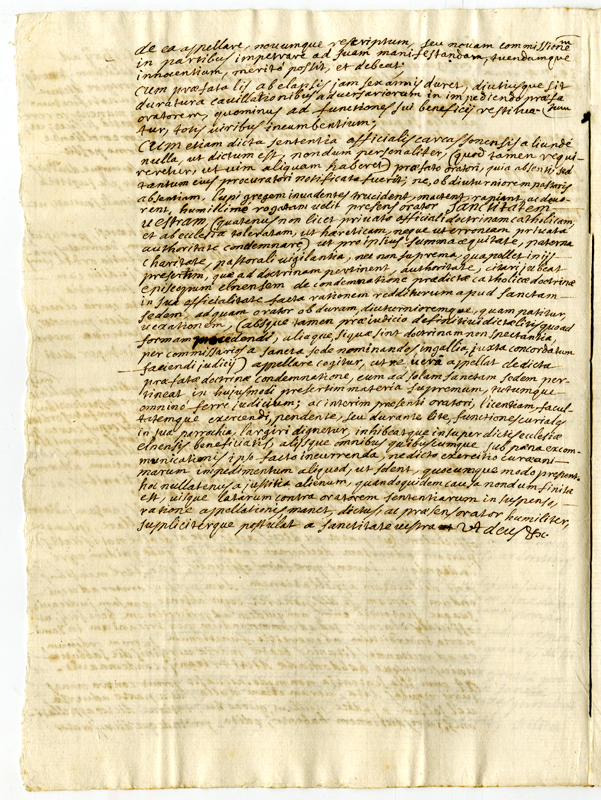 de ea appellare, novumque rescriptum, seu novam commissionem
in partibus impetrare ad suam manifestandam, tuendamque
innocentiam, merito possit, et debeat.
Cum præfata lis ab elapsis jam sex annis duret, diutiusque sit
duratura cavillationibus adversariorum in impediendo præfa
oratorem, quominus ad functiones sui beneficij restitua-
tur, totis viribus incumbentium;
Cum etiam dicta sententia officialis carcassonensis aliunde
nulla, ut dictum est, nondum personaliter, (quod tamen requi-
reretur, ut vim aliquam haberet) præfato oratori, quia absenti, sed
tantum ejus procuratori notificata fuerit; ne, ob diuturniorem pastoris
absentiam, lupi gregem invadentes trucident, mactent, rapiant, ac devo-
rent, humillime rogatam velit præsens orator Sanctitatem
vestram, quatenus non licet privato officiali doctrinam catholicam
et ab ecclesia toleratam, ut hæreticam, neque ut erroneam privata
authoritate condemnare) ut pro ipsius summa æquitate, paterna
charitate, pastorali vigilantia, nec non suprema, qua pollet in ijs
presertim, quæ ad doctrinam pertinent, authoritate, citari jubeat
episcopum elnensem de condemnatione prædictæ catholicæ doctrinæ
in sua officialitate facta rationem redditurum apud Sanctam
sedem, ad quam orator ob duram, diuturnioremque, quam patitur,
vexationem, (absque tamen præjudicio defectus dictæ litis quoad
formam procedendi, aliaque, si qua sint doctrinam non spectantia,
per commissarios a sancta sede nominandos in gallia, juxta concordatum
faciendi judicij) appellare cogitur, ut re vera appellat de dicta
præfatæ doctrinæ condemnatione, cum ad solam sanctam sedem per-
tineat in hujusmodi presertim materia supremum, tutumque
omnino ferre judicium; ac interim præsenti oratori, licentiam facul-
tatemque exercendi, pendente, seu durante lite, functiones curiales
in sua parrochia, largiri dignetur, inhibeatque insuper dictæ ecclesiæ
elnensis beneficiatis, alijsque omnibus quibuscumque sub pœna excom-
municationis ipso facto incurrenda, ne dicto exercitio curæ ani-
marum impedimentum aliquod, ut solent, quocumque modo præsent.
hoc nullatenus a justitia alienum, quandoquidem causa nondum finita
est, usque latarum contra oratorem sententiarum in suspenso,
ratione appellationis manet, dictus, ac præsens orator humiliter,
suppliciterque postulat a sanctitate vestra Ut deus &c.